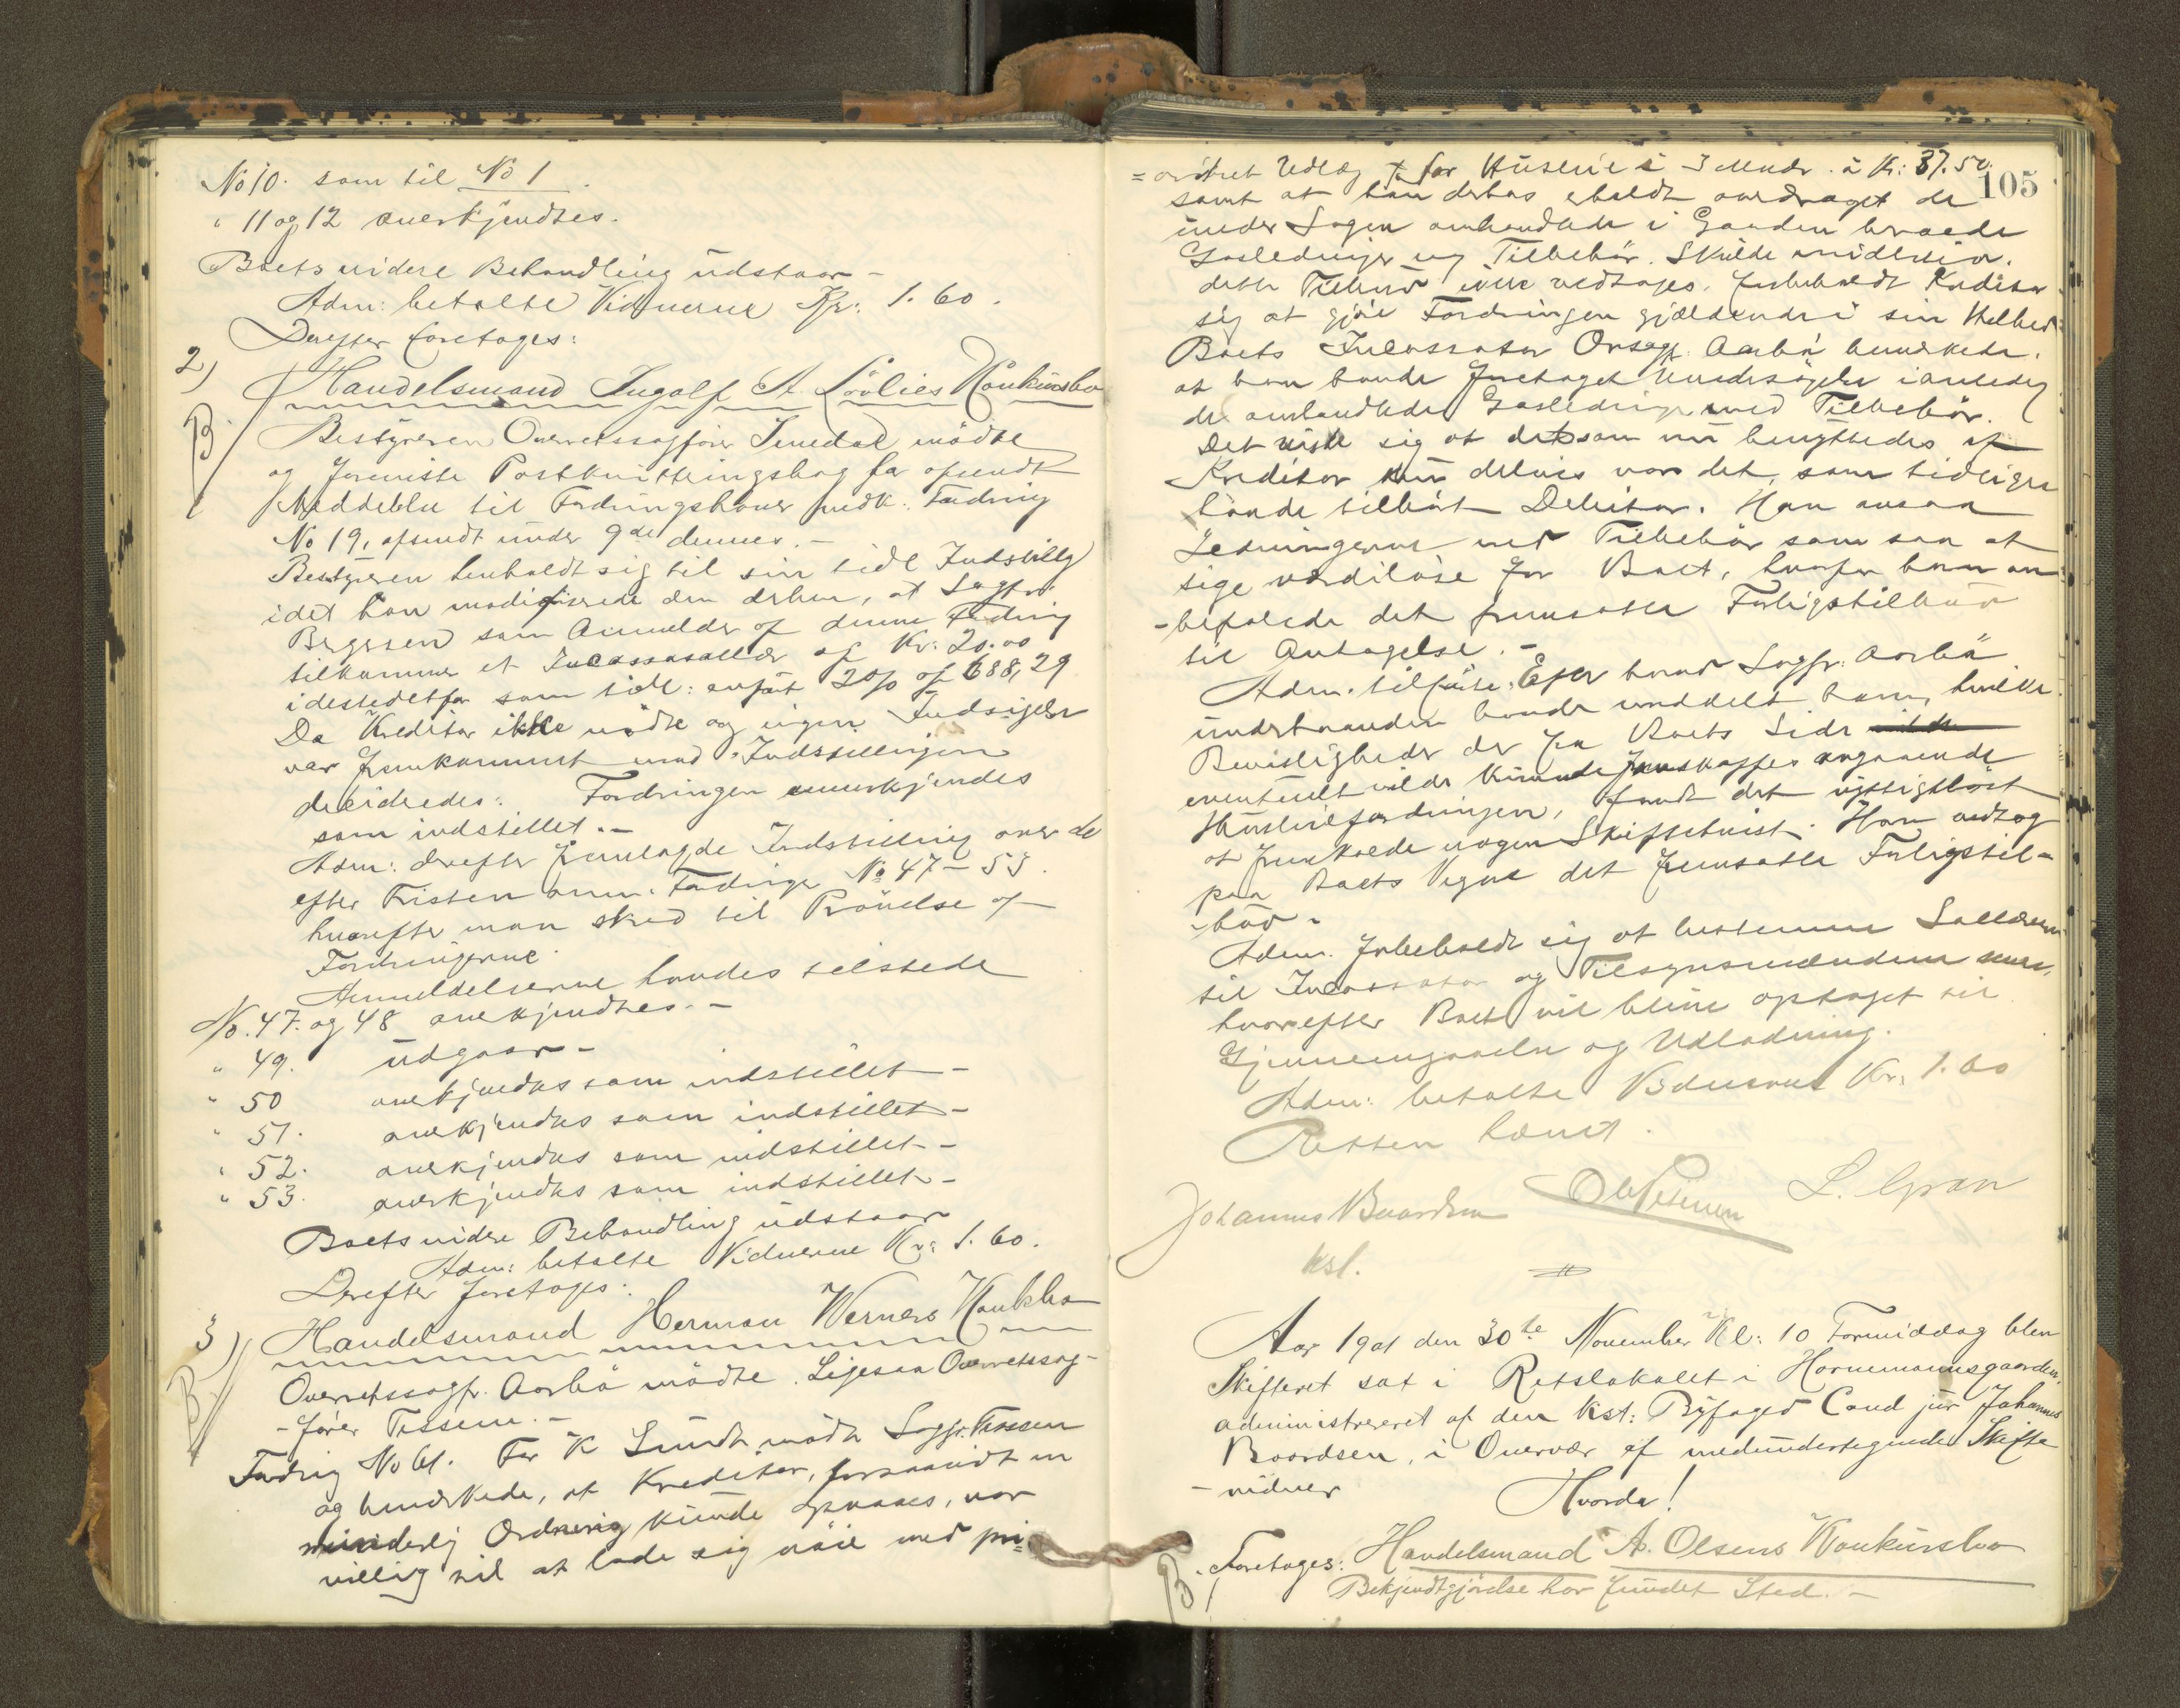 No 10. som til No 1.
" 11 og 12 anerkjendtes.
Boets videre Behandling udstaar -
Adm: betalte Vidnerne Kr: 1.60.
Derefter foretoges:
2)
Handelsmand Ingolf A. Lövlies Konkursbo
B.
Bestyreren Overretssagförer Tmedal mödte
og fremviste Postkvitteringsbog for afsendt
Meddelelse til Fordringshaver medk. Fordring
No 19, afsendt under 9de dennes. -
Bestyreren henholdt sig til sin tidl Indstillg
idet han modificerede den derhen, at Sagför
som Anmelder af denne Fordring
tilkommer et Incassosallær af Kr: 20.00
idestedetfor som tidl: anfört 2% af 688,29
Da Kreditor ikke mödte og ingen Indsigelse
var fremkommet mod Indstillingen
decideredes: Fordringen anerkjendes
som indstillet. -
Adm: derefter fremlagde Indstilling over de
efter Fristen anm. Fordringer No 47 - 53.
hvorefter man skred til Prövelse af
Fordringerne.
Anmeldelserne havdes tilstede
No. 47. og 48 anerkjendtes. -
" 49. udgaar -
" 50 anerkjendtes som indstillet -
" 51. anerkjendtes som indstillet -
" 52. anerkjendtes som indstillet -
" 53. anerkjendtes som indstillet -
Boets videre Behandling udstaar
Adm: betalte Vidnerne Kr: 1.60.
Derefter foretoges:
3)
Handelsmand Herman Werners Konkbo
B.
Overretssagfr. Aarbö mödte. Ligesaa Overretssag-
-förer Tessem. -
Fordring No 61. For K Lundt mödte Sagfr. Tessem
og bemærkede, at Kreditor, forsaavidt en
mindelig Ordning kunde opnaaes, var
villig til at lade sig nöie med pri=
105
=oritret Udlæg for Husleie i 3 Mndr. à Kr: 37.50.
samt at han derhos erholdt overdraget de
under Sagen omhandlede i Gaarden
Gasledninger og Tilbehör. Skulde imidlertid
dette Tilbud ikke vedtages, forbeholdt Kreditor
sig at gjöre Fordringen gjældende i sin Helhed.
Boets Incassator Orsagf. Aarbö bemærkede,
at han havde foretaget Undersögelse ianledg
de omhandlede Gasledninger med Tilbehör.
Det viste sig at det som nu benyttedes af
Kreditor kun delvis var det, som tidligere
havde tilhört Debitor. Han ansaa
Ledningerne med Tilbehör som saa at
sige værdilöse for Boet, hvorfor han an
-befalede det fremsatte Forligstilbud
til Antagelse. -
Adm. tilföiede: Efter hvad Sagfr. Aarbö
underhaanden havde meddelt ham, hvilke
Bevisligheder der fra Boets Side
eventuelt vilde kunde fremskaffes angaaende
Huslejefordringen, fandt det nyttiglöst
at fremkalde nogen Skiftetvist. Han vedtog
paa Boets Vegne det fremsatte Forligstil-
-bud -
Adm. forbeholdt sig at bestemme Sallærerne
til Incassator og Tilsynsmændene senere,
hvorefter Boet vil blive optaget til
Gjennemgaaelse og Udlodning.
Adm: betalte Vidnerne Kr. 1.60
Retten hævet.
Johannes Baardsen
kst.
L. Gran
Aar 1901 den 30te November Kl: 10 Formiddag blev
Skifteret sat i Retslokalet i Hornemannsgaarden,
administreret af den kst: Byfoged Cand jur Johannes
Baardsen, i Overvær af medundertegnede Skifte
-vidner
Hvorda!
B.
Foretoges: Handelsmand A. Olsens Konkursbo
Bekjendtgjörelse har fundet Sted. -